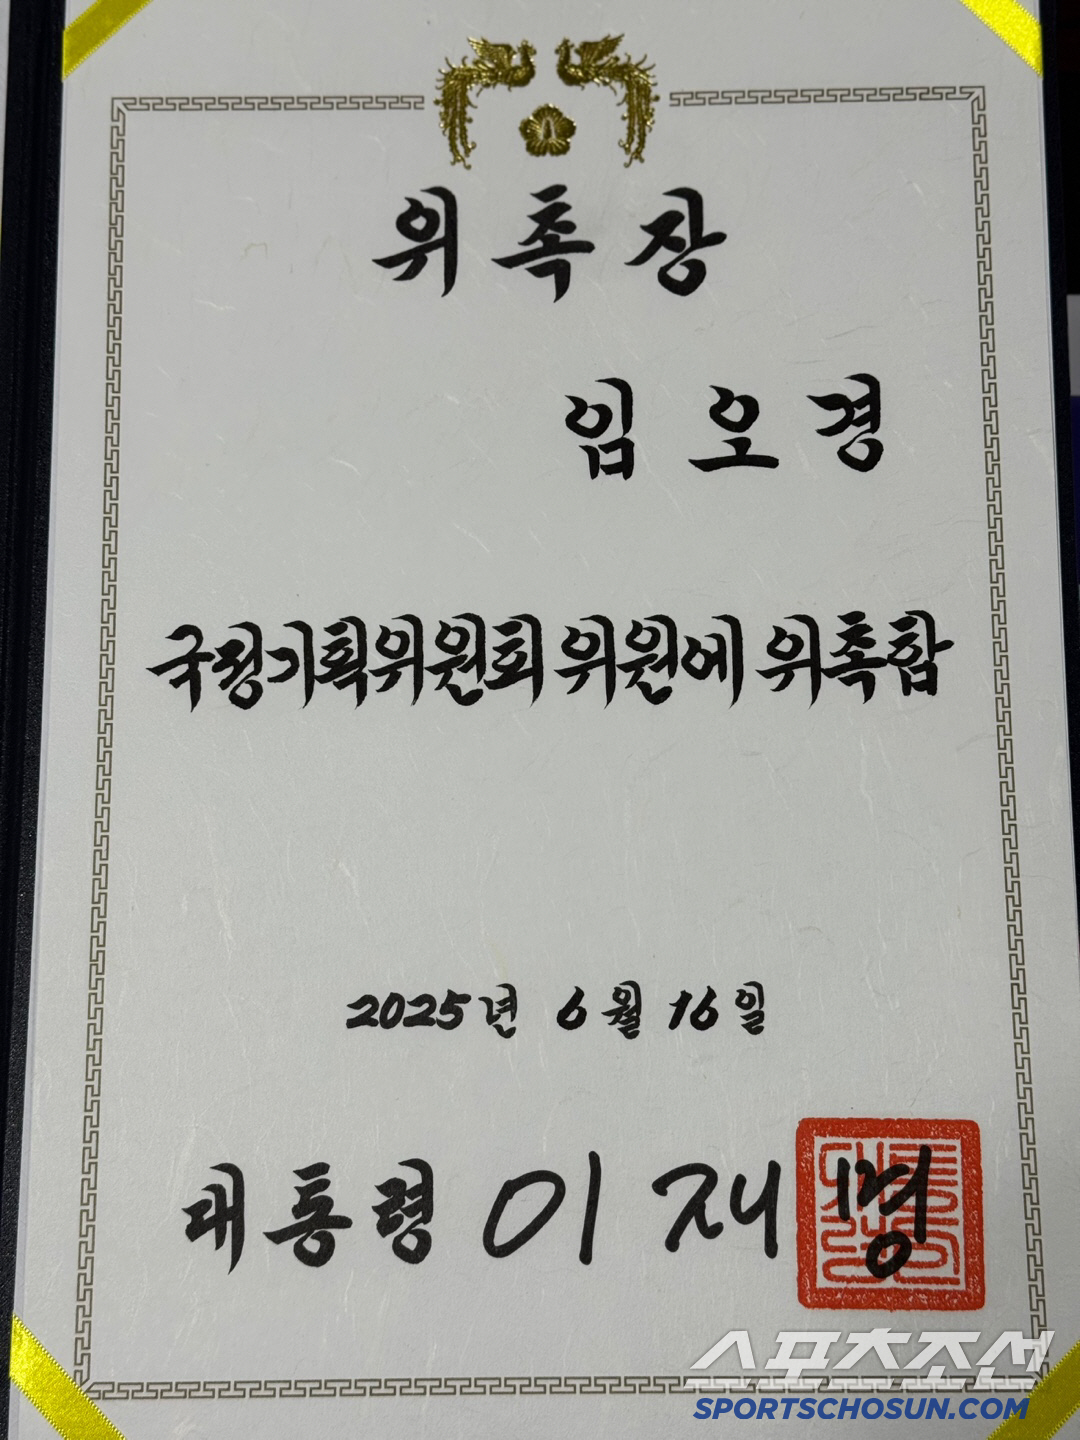 위촉장
임오경
국정기획위원회 위원에 위촉함
2025년 6월 16일
대통령 이재명
스포츠조선
SPORTSCHOSUN.COM